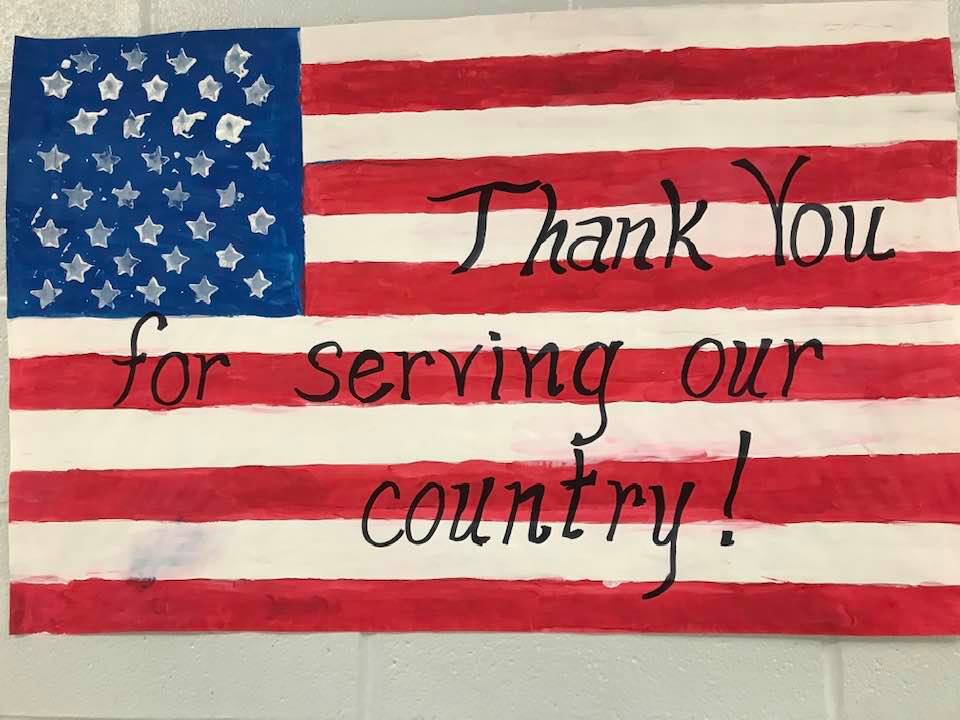 Thank You
for serving our
country!